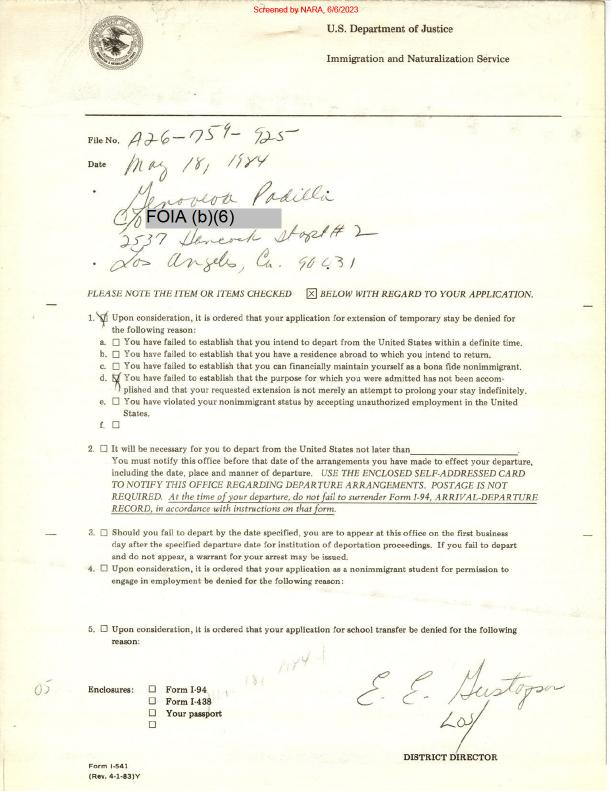 Screened by NARA, 6/6/2023
U.S. Department of Justice
Immigration and Naturalization Service
File No. A26-759-925
Date May 18, 1984
Genoveva Padilla
C/o FOIA (b)(6)
2537 Hancock St apt # 2
Los Angeles, Ca. 90031
PLEASE NOTE THE ITEM OR ITEMS CHECKED ☒ BELOW WITH REGARD TO YOUR APPLICATION.
1. ☒ Upon consideration, it is ordered that your application for extension of temporary stay be denied for
the following reason:
a. ☐ You have failed to establish that you intend to depart from the United States within a definite time.
b. ☐ You have failed to establish that you have a residence abroad to which you intend to return.
c. ☐ You have failed to establish that you can financially maintain yourself as a bona fide nonimmigrant.
d. ☒ You have failed to establish that the purpose for which you were admitted has not been accom-
plished and that your requested extension is not merely an attempt to prolong your stay indefinitely.
e. ☐ You have violated your nonimmigrant status by accepting unauthorized employment in the United
States.
f. ☐
2. ☐ It will be necessary for you to depart from the United States not later than
You must notify this office before that date of the arrangements you have made to effect your departure,
including the date, place and manner of departure. USE THE ENCLOSED SELF-ADDRESSED CARD
TO NOTIFY THIS OFFICE REGARDING DEPARTURE ARRANGEMENTS. POSTAGE IS NOT
REQUIRED. At the time of your departure, do not fail to surrender Form I-94, ARRIVAL-DEPARTURE
RECORD, in accordance with instructions on that form.
3. ☐ Should you fail to depart by the date specified, you are to appear at this office on the first business
day after the specified departure date for institution of deportation proceedings. If you fail to depart
and do not appear, a warrant for your arrest may be issued.
4. ☐ Upon consideration, it is ordered that your application as a nonimmigrant student for permission to
engage in employment be denied for the following reason:
5. ☐ Upon consideration, it is ordered that your application for school transfer be denied for the following
reason:
05
Enclosures: ☐ Form I-94
☐ Form I-438
☐ Your passport
☐
E. E. Gustafson
LOS
DISTRICT DIRECTOR
Form I-541
(Rev. 4-1-83)Y